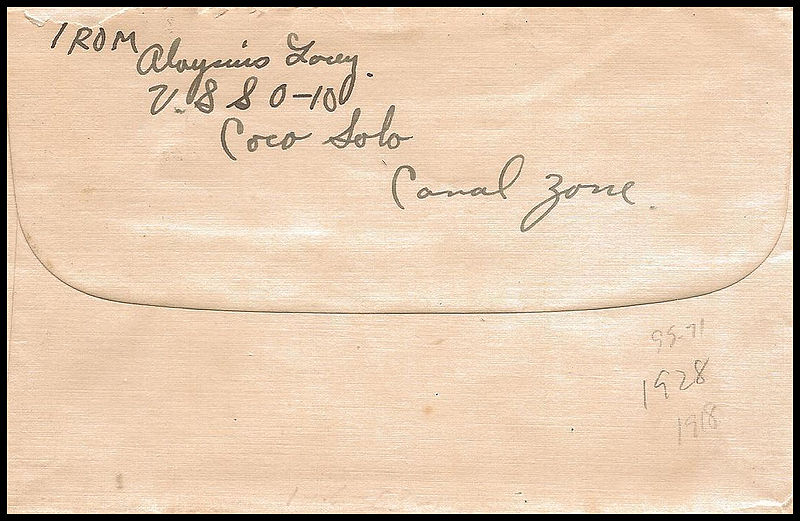 FROM
Aloysius
U.S S O-10
Coco Solo
Canal Zone.
99-71
1928
1918